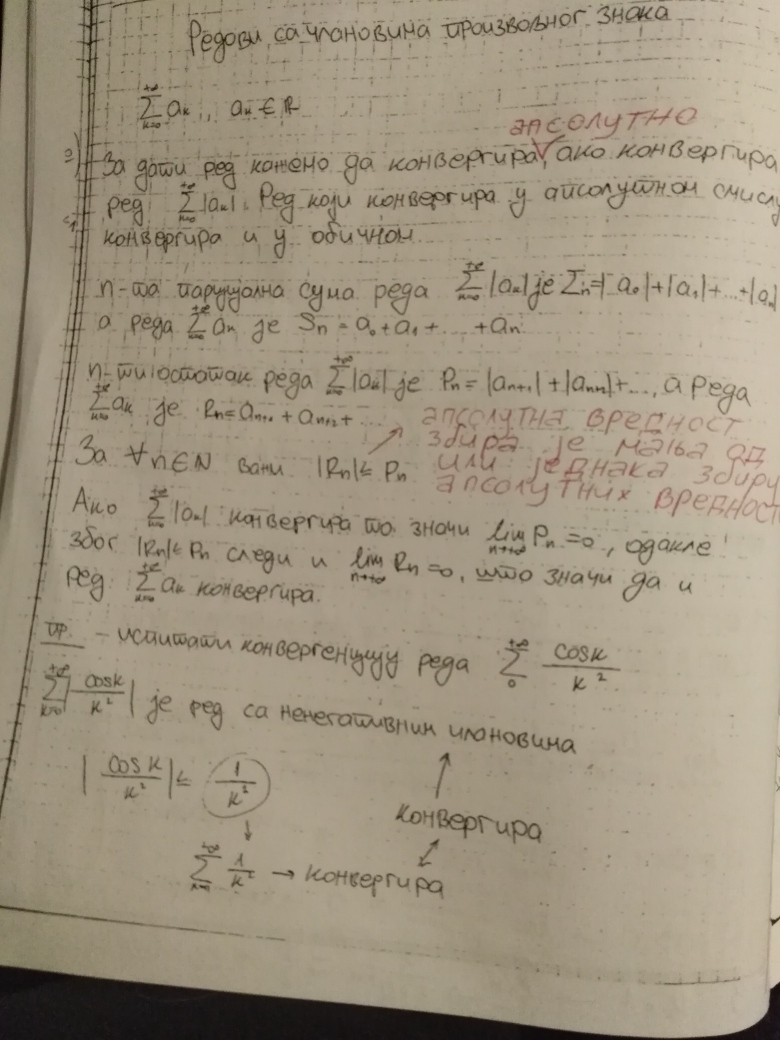 Редови са члановима произвољног знака
+∞∑k=0 aₖ, aₖ ∈ R
апсолутно
За дати ред кажемо да конвергира ✓, ако конвергира
ред +∞∑k=0 |aₖ|. Ред који конвергира у апсолутном смислу
конвергира и у обичном.
n-та парцијална сума реда +∞∑k=0 |aₖ| је Σₙ=|a₀|+|a₁|+...+|aₙ|
а реда +∞∑k=0 aₖ је Sₙ = a₀+a₁+...+aₙ
n-ти остатак реда +∞∑k=0 |aₖ| је Pₙ = |aₙ₊₁|+|aₙ₊₂|+..., а реда
+∞∑k=0 aₖ је Rₙ = aₙ₊₁ + aₙ₊₂ + ...
апсолутна вредност
збира је мања од
или једнака збиру
апсолутних вредност
За ∀n∈N важи |Rₙ| ≤ Pₙ
Ако +∞∑k=0 |aₖ| конвергира то значи lim n→+∞ Pₙ = 0, одакле
због |Rₙ| ≤ Pₙ следи и lim n→+∞ Rₙ = 0, што значи да и
ред +∞∑k=0 aₖ конвергира.
пр. - испитати конвергенцију реда +∞∑0 cosk/k²
+∞∑k=0 |cosk/k²| је ред са ненегативним члановима
|cosk/k²| ≤ 1/k²
конвергира
+∞∑k=1 1/k² → конвергира